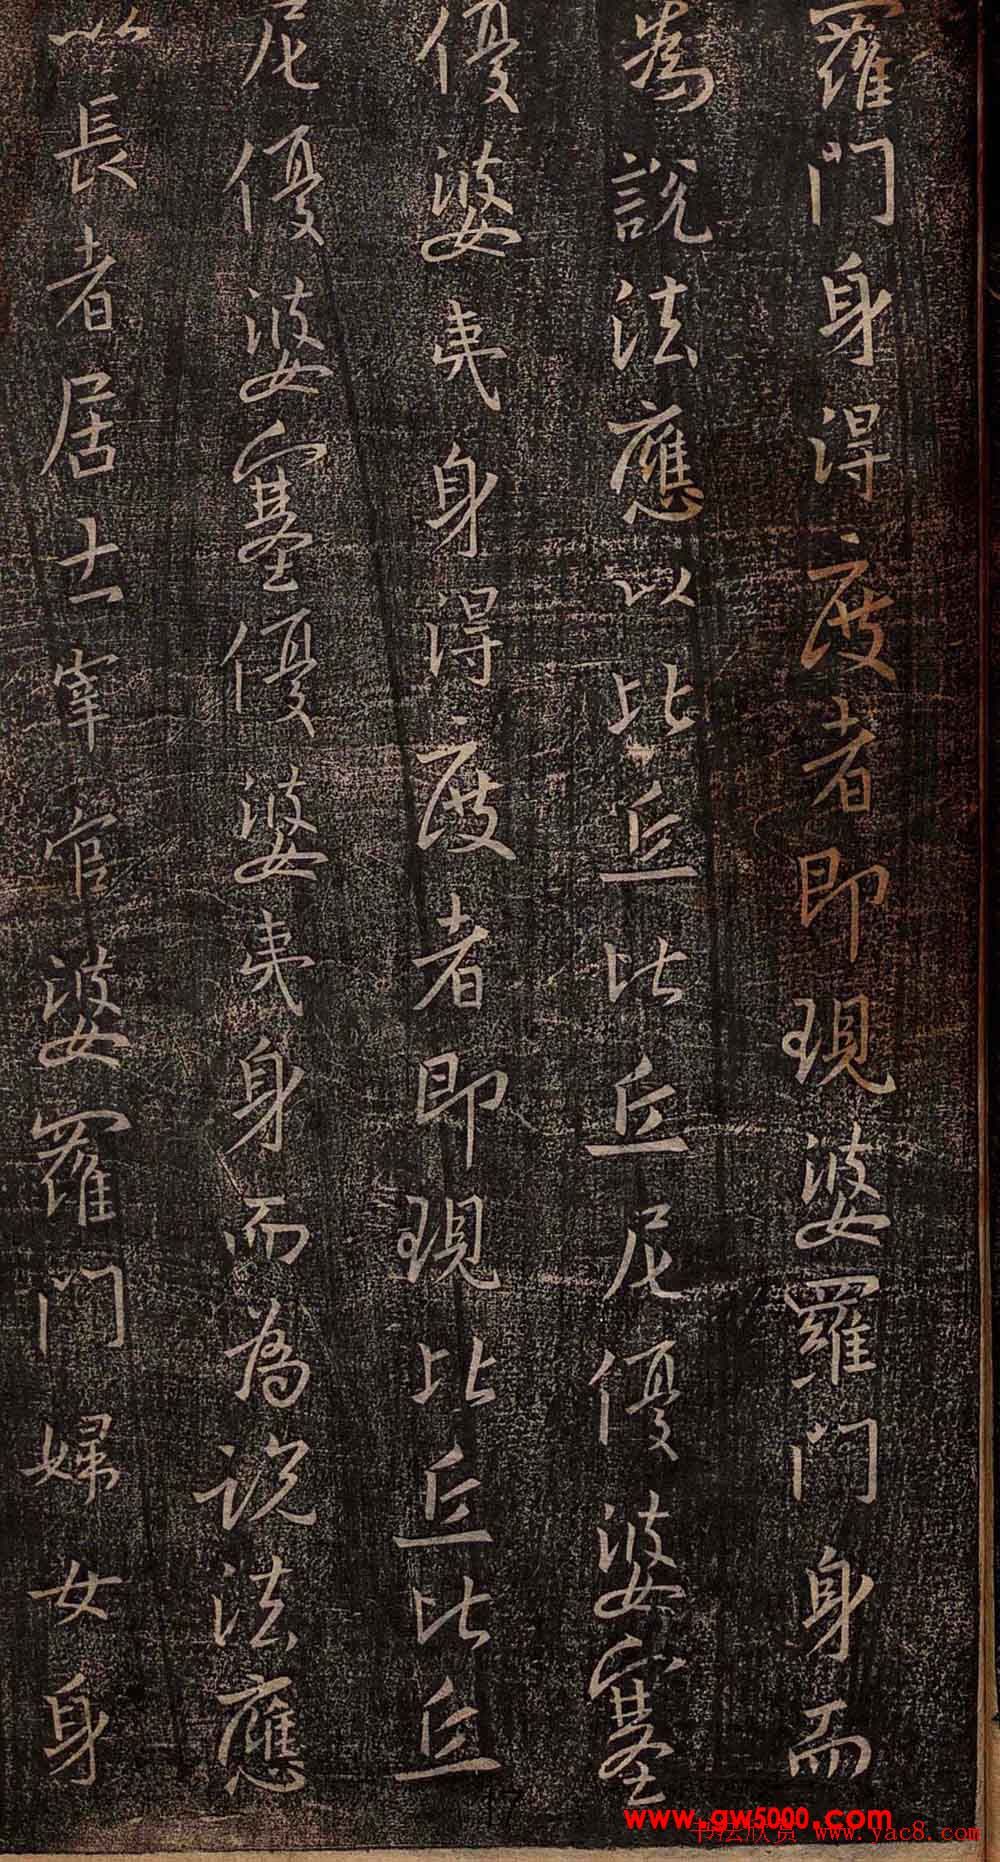 羅門身得度者即現婆羅門身而
為說法應以比丘比丘尼優婆塞
優婆夷身得度者即現比丘比丘
尼優婆塞優婆夷身而為說法應
以長者居士宰官婆羅門婦女身
17
www.gw5000.com
书法欣赏 www.yac8.com